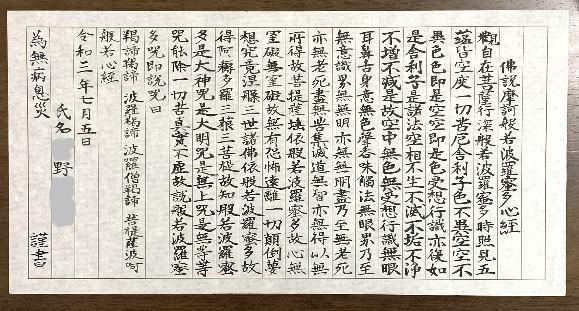 佛説摩訶般若波羅蜜多心経
観自在菩薩行深般若波羅蜜多時照見五
蘊皆空度一切苦厄舎利子色不異空空不
異色色即是空空即是色受想行識亦復如
是舎利子是諸法空相不生不滅不垢不浄
不増不減是故空中無色無受想行識無眼
耳鼻舌身意無色声香味触法無眼界乃至
無意識界無無明亦無無明盡乃至無老死
亦無老死盡無苦集滅道無智亦無得以無
所得故菩提薩埵依般若波羅蜜多故心無
罣礙無罣礙故無有恐怖遠離一切顛倒夢
想究竟涅槃三世諸佛依般若波羅蜜多故
得阿耨多羅三藐三菩提故知般若波羅蜜
多是大神呪是大明呪是無上呪是無等等
呪能除一切苦真實不虚故説般若波羅蜜
多呪即説呪曰
羯諦羯諦 波羅羯諦 波羅僧羯諦 菩提薩婆訶
般若心経
令和三年七月五日
氏名 野 謹書
為無病息災